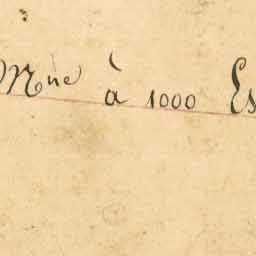 Mne à 1000 Es